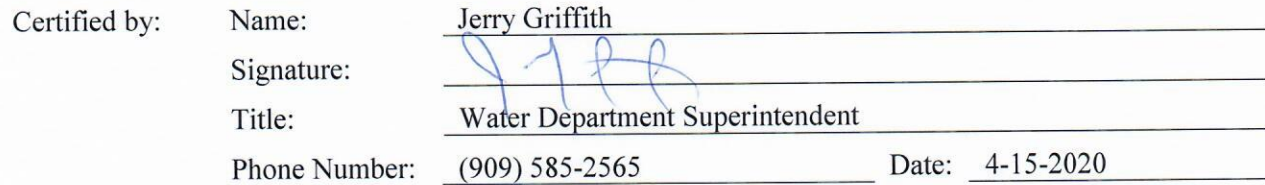 Certified by: Name: Jerry Griffith
Signature:
Title: Water Department Superintendent
Phone Number: (909) 585-2565 Date: 4-15-2020